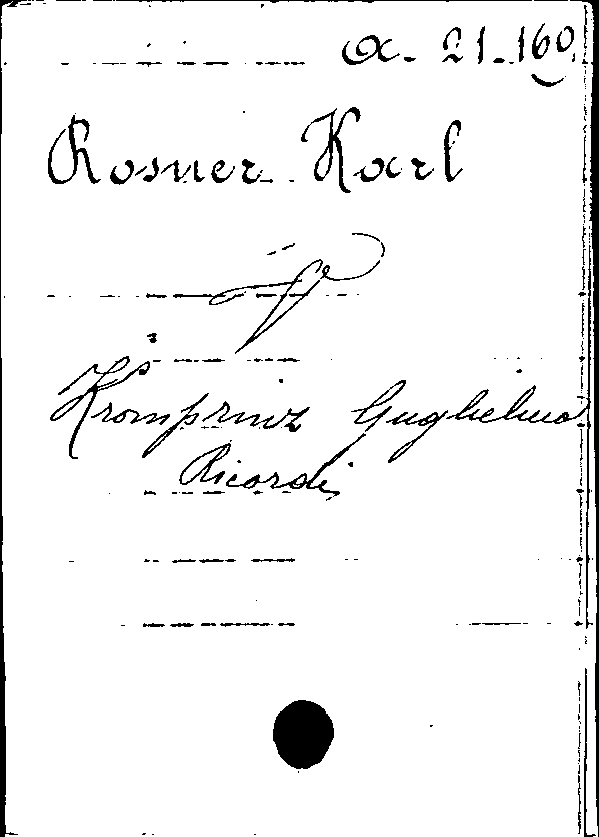 A. 21.160
Rosner Karl
V
Kromprinz Guglielmo
Ricordi